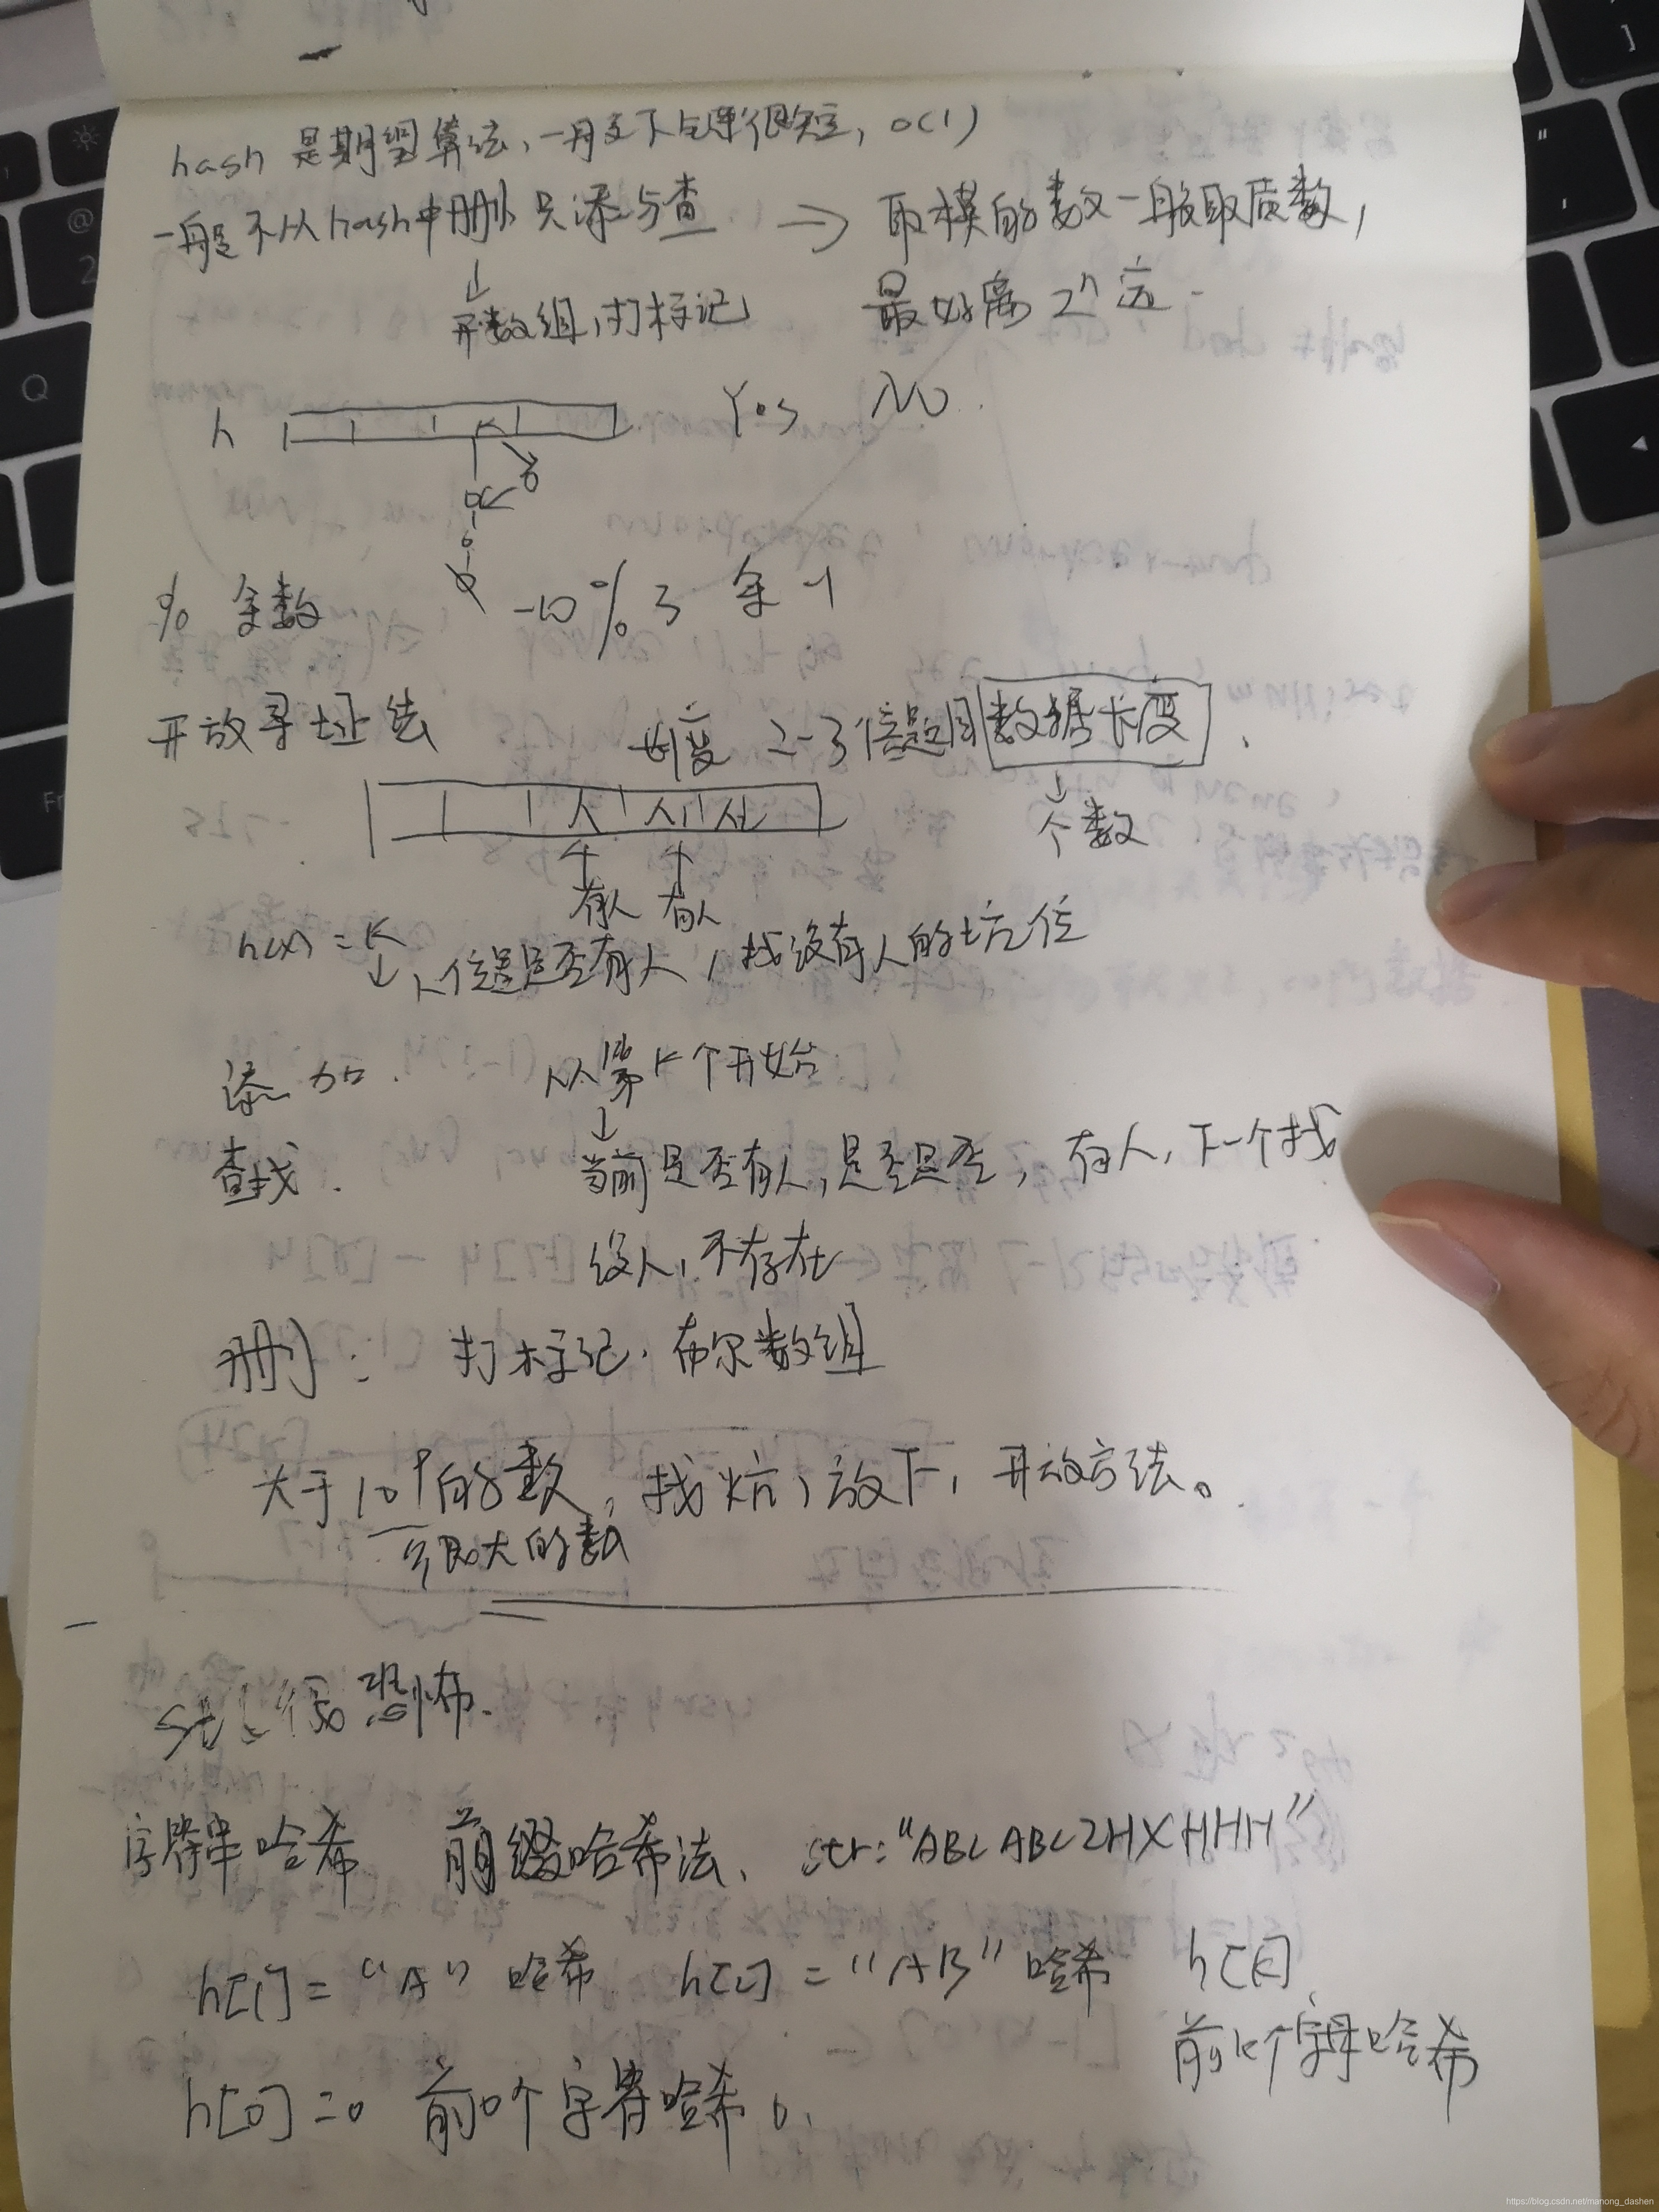 hash 是期望算法,一般情况下链很短, o(1)
一般不从hash中删 只添与查 → 取模的数一般取质数,
开数组,打标记 最好离 2ⁿ 远
h Yes NO
% 余数 -10 % 3 余 -1
开放寻址法 长度 2-3倍题目数据长度
个数
有人 有人
h(x) = k
k位置是否有人,找没有人的坑位
添加. 从第k个开始
查找. 当前是否有人,是否是否,有人,下一个找
没人,不存在
删: 打标记. 布尔数组
大于10⁹的数,找坑,放下,开放方法。
无限大的数
STL 很恐怖.
字符串哈希 前缀哈希法、 str:"ABCABCZHXHHH"
h[1] = "A" 哈希 h[2] = "AB" 哈希 h[k]
前k个字母哈希
h[0] = 0 前0个字符哈希 0.
Q
Fn
2
@
https://blog.csdn.net/manong_dashen